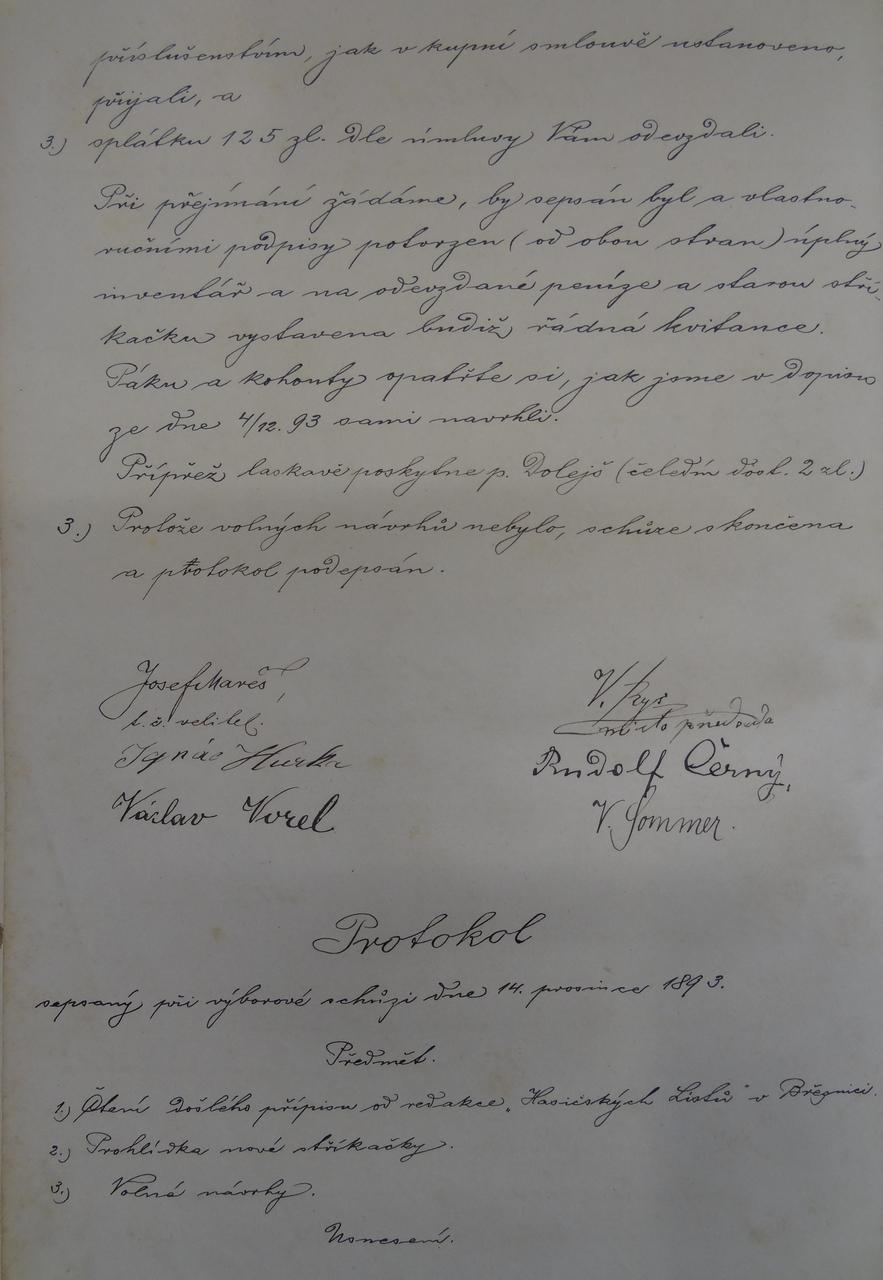 příslušenstvím, jak v kupní smlouvě ustanoveno,
přijali, a
3.) splátku 125 zl. dle úmluvy Vám odevzdali.
Při přejímání žádáme, by sepsán byl a vlastno-
ručními podpisy potvrzen (od obou stran) úplný
inventář a na odevzdané peníze a starou stří-
kačku vystavena budiž řádná kvitance.
Páku a kohouty opatřte si, jak jsme v dopisu
ze dne 4/12. 93 sami navrhli.
Přípřež laskavě poskytne p. Dolejš (čeledín dost. 2 zl.)
3.) Protože volných návrhů nebylo, schůze skončena
a protokol podepsán.
Josef Mareš,
t. č. velitel.
Ignác Hurka
Václav Vorel
V. Krys
místopředseda
Rudolf Černý,
V. Sommer.
Protokol
sepsaný při výborové schůzi dne 14. prosince 1893.
Předmět.
1.) Čtení došlého přípisu od redakce „Hasičských Listů" v Březnici.
2.) Prohlídka nové stříkačky.
3.) Volné návrhy.
Usnesení.